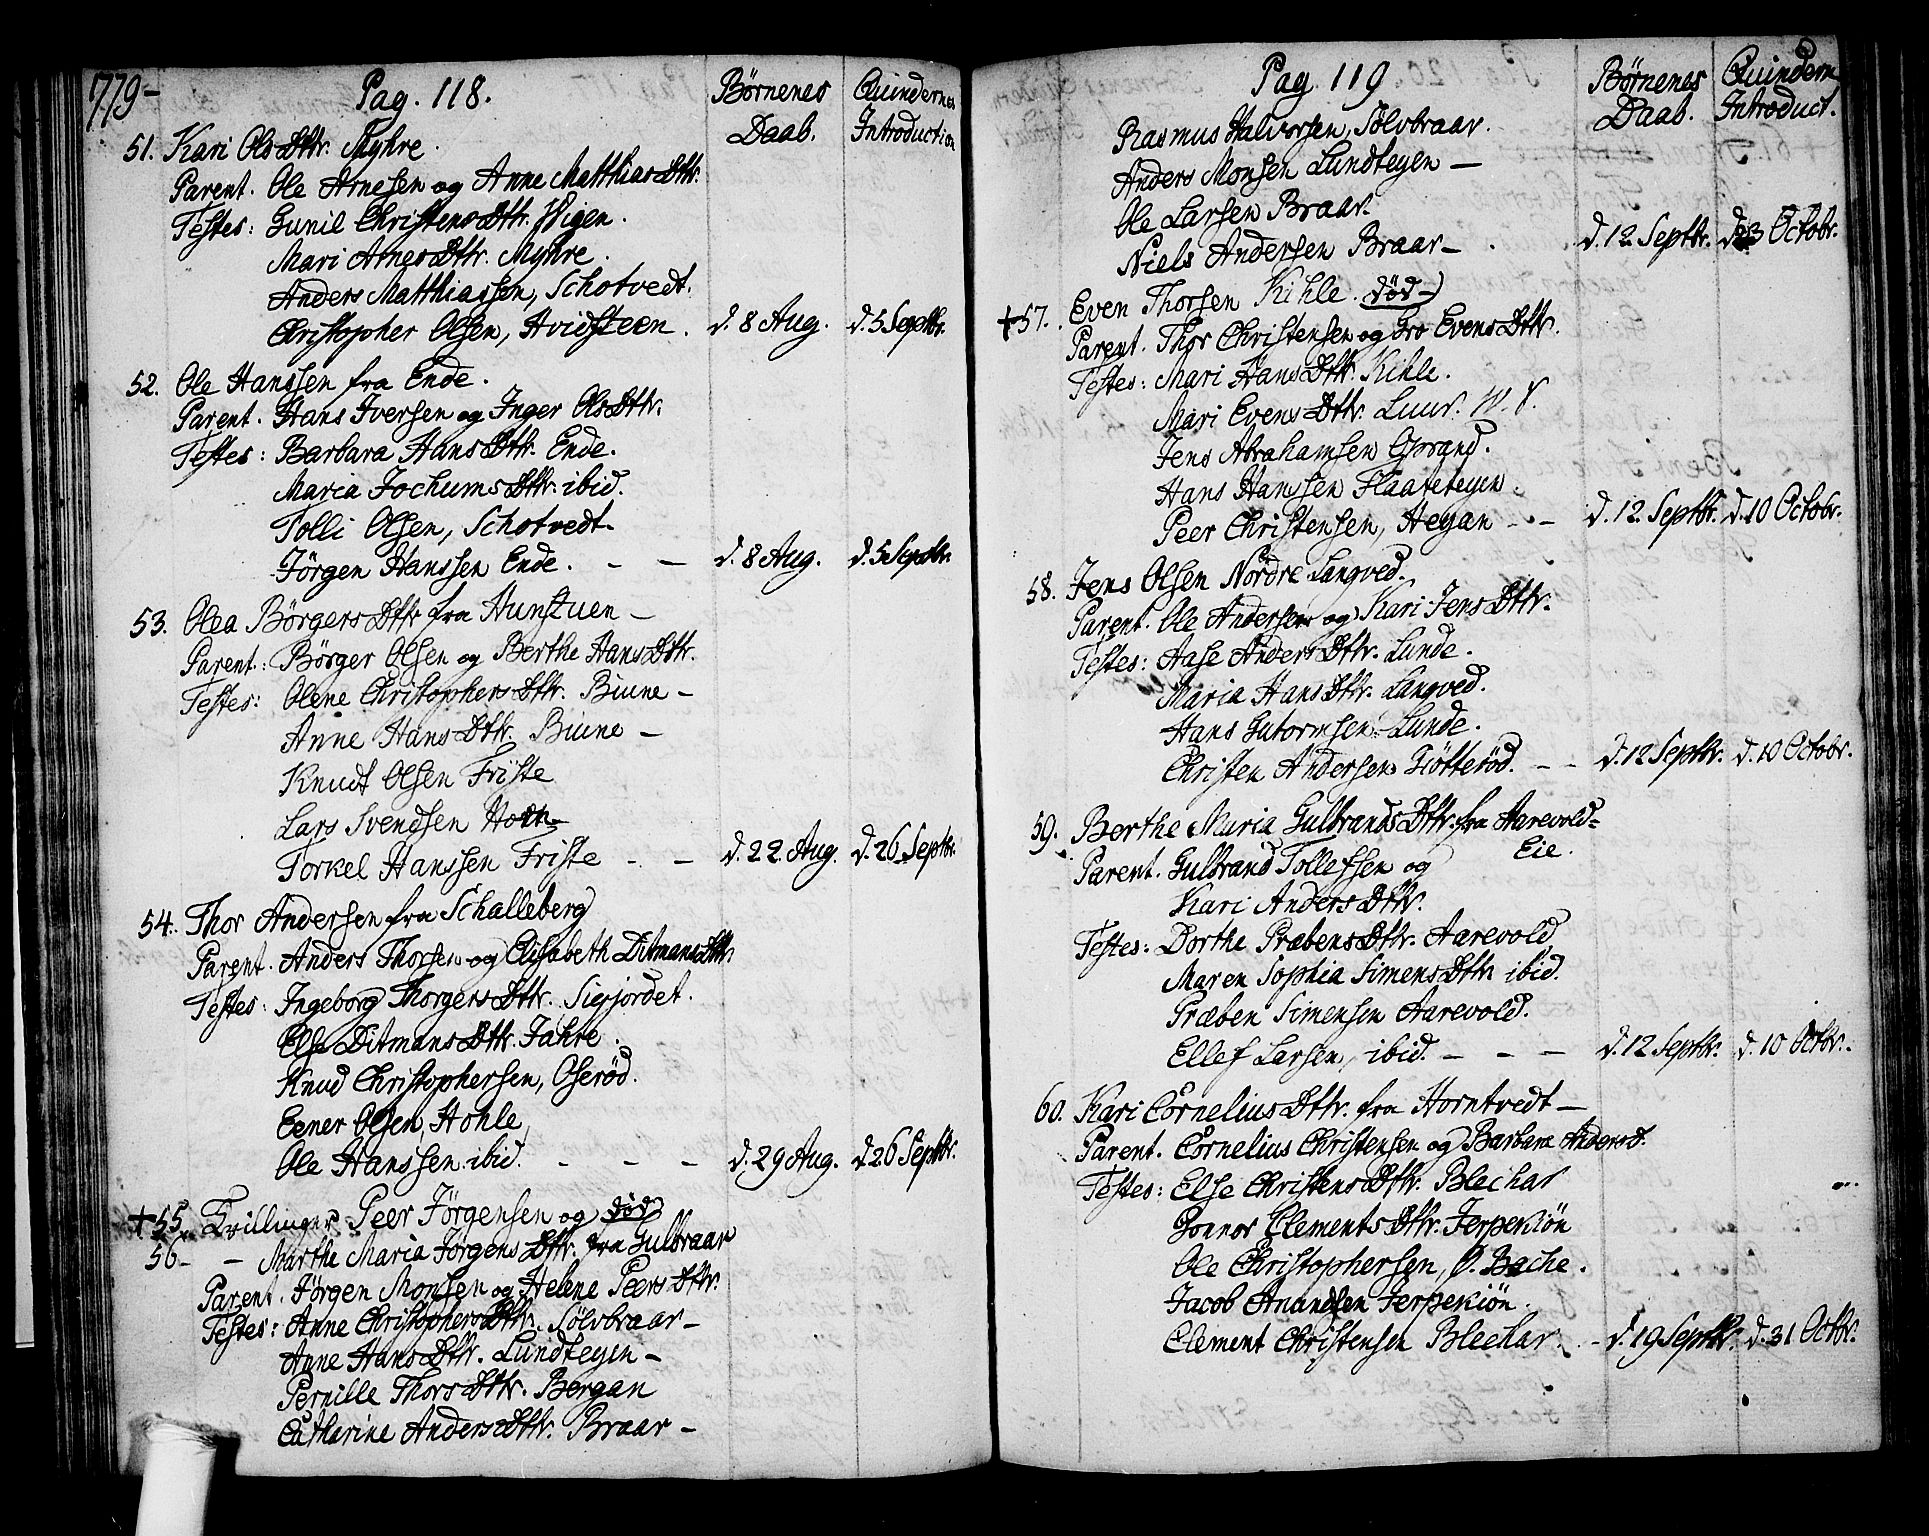 779-
Pag. 118.
Børnenes Daab.
Quindernes Introduction
51. Kari OlsDttr. Myhre.
Parent. Ole Arnesen og Anne MatthiasDttr.
Testes: Gunil ChristensDttr. Wigen.
Mari ArnesDttr. Myhre.
Anders Matthiassen, Schotvedt.
Christopher Olsen, Hvidsteen. d. 8 Aug. d. 5 Septbr.
52. Ole Hanssen fra Ende.
Parent. Hans Iversen og Inger OlsDttr.
Testes: Barbara HansDttr. Ende.
Maria JochumsDttr. ibid.
Tolli Olsen, Schotvedt.
Jörgen Hanssen Ende. - - d. 8 Aug. d. 5 Septbr.
53. Olea BörgersDttr fra Hunstuen -
Parent.: Börger Olsen og Berthe HansDttr.
Testes: Olene ChristophersDttr. Biune -
Anne HansDttr. Biune -
Knudt Olsen Friste
Lars Svendsen Horn
Torkel Hanssen Friste - - d. 22. Aug. d. 26 Septbr.
54. Thor Andersen fra Schalleberg
Parent. Anders Thorsen og Elisabeth DitmansDttr.
Testes: Ingeborg ThorgersDttr. Siejordet.
Else DitmansDttr. Jahre.
Knud Christophersen, Oserød.
Eener Olsen, Hohle
Ole Hanssen ibid. - - - d. 29 Aug. d. 26 Septbr.
+55. Tvillinger Peer Jörgensen og død
56- - Marthe Maria JörgensDttr. fra Gulbraar
Parent. Jörgen Monsen og Helene PeersDttr.
Testes: Anne ChristophersDttr. Sölvbraar -
Anne HansDttr. Lundtegen -
Pernille ThorsDttr. Bergan
Catharine AndersDttr. Braar -
Pag. 119
Børnenes Daab.
Quindern Introduct.
Rasmus Halvorsen, Sölvbraar.
Anders Monsen Lundtegen -
Ole Larsen Braar.
Niels Andersen Braar - . d. 12 Septbr. d. 3 Octobr.
+57. Even Thorsen Kihle. død -
Parent. Thor Christensen og Gro EvensDttr.
Testes: Mari HansDttr. Kihle.
Mari EvensDttr. Luur.
Jens Abrahamsen
Hans Hanssen Flaatetegen.
Peer Christensen, Hegan - - d. 12. Septbr. d. 10 Octobr.
58. Jens Olsen Nordre Langved.
Parent. Ole Andersen og Kari JensDttr.
Testes: Aase AndersDttr. Lunde.
Maria HansDttr. Langved.
Hans Gutormsen Lunde.
Christen Andersen Giötteröd. - - d. 12 Septbr. d. 10 Octobr.
59. Berthe Maria GulbrandsDttr. fra Aarevold=
Eie.
Parent. Gulbrand Tollefsen og
Kari AndersDttr.
Testes: Dorthe PræbensDttr. Aarevold
Maren Sophia SimensDttr ibid.
Præben Simensen Aarevold.
Ellef Larsen, ibid. - - - d. 12 Septbr. d. 10 Octbr.
60. Kari CorneliusDttr. fra Horntvedt -
Parent. Cornelius Christensen og Barbara Andersd.
Testes: Else ChristensDttr. Blechar
Gonnor ClementsDttr. Jerpekiön
Ole Christophersen, Ø. Bache.
Jacob Anundsen Jerpekiön.
Clement Christensen Blechar. - d. 19 Septbr. d. 31 Octbr.